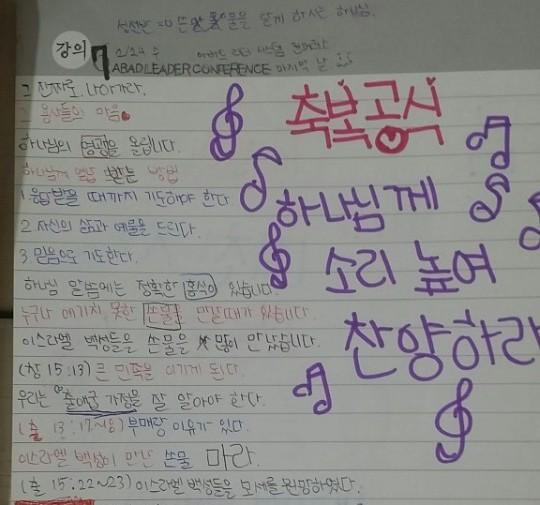 성전반 =0 뜬 쓴물을 달게 하시는 하나님.
강의 7
2/24 수
ABADILEADERCONFERENCE 마지막 날
그 진짜로 나아가라.
그 용사들의 마음
하나님의 영광을 올립니다.
하나님께 받는 방법
1 응답받을 때까지 기도해야 한다
2 자신의 삶과 예물을 드린다.
3 믿음으로 기도한다.
하나님 말씀에는 정확한 공식이 있습니다.
누구나 예기치 못한 쓴물을 만날때가 있습니다.
이스라엘 백성들을 쓴물을 많이 만났습니다.
(창 15:13) 큰 민족을 이기게 된다.
우리는 출애굽 과정을 잘 알아야 한다.
(출 13:17~18) 부매랑 이유가 있다.
이스라엘 백성이 만난 쓴물 마라.
(출 15:22~23) 이스라엘 백성들은 모세를 원망하였다.
축복공식
하나님께
소리 높여
찬양하라